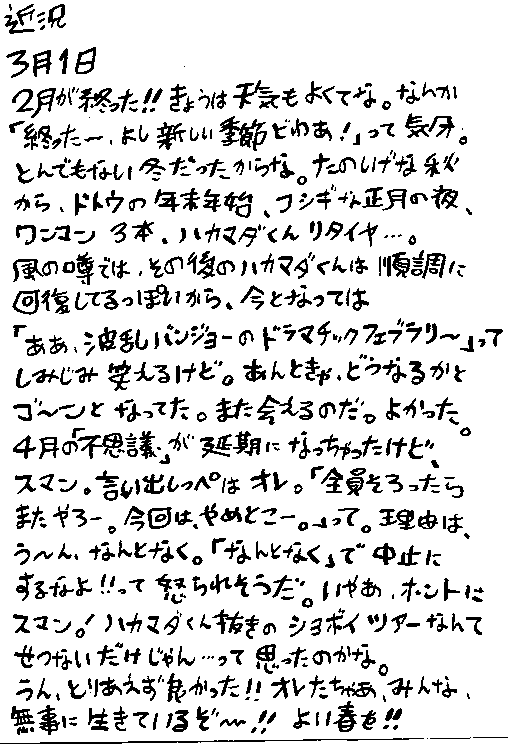 近況
3月1日
2月が終った!!きょうは天気もよくてな。なんか
「終った〜、よし新しい季節どわあ!」って気分。
とんでもない冬だったからな。たのしげな秋
から、ドトウの年末年始、フシギな正月の夜、
ワンマン3本、ハカマダくんリタイヤ…。
風の噂では、その後のハカマダくんは順調に
回復してるっぽいから、今となっては
「ああ、波乱バンジョーのドラマチックフェブラリ〜」って
しみじみ笑えるけど。あんときゃ、どうなるかと
ゴ〜ンとなってた。また会えるのだ。よかった。
4月の「不思議」が延期になっちゃったけど、
スマン。言い出しっぺはオレ。「全員そろったら
またやろー。今回は、やめとこー。」って。理由は、
う〜ん、なんとなく。「なんとなく」で中止に
するなよ!!って怒られそうだ。いやあ、ホントに
スマン。!ハカマダくん抜きのショボイツアーなんて
せつないだけじゃん…って思ったのかな。
うん、とりあえず良かった!!オレたちゃあ、みんな、
無事に生きているぞ〜!!よい春を!!